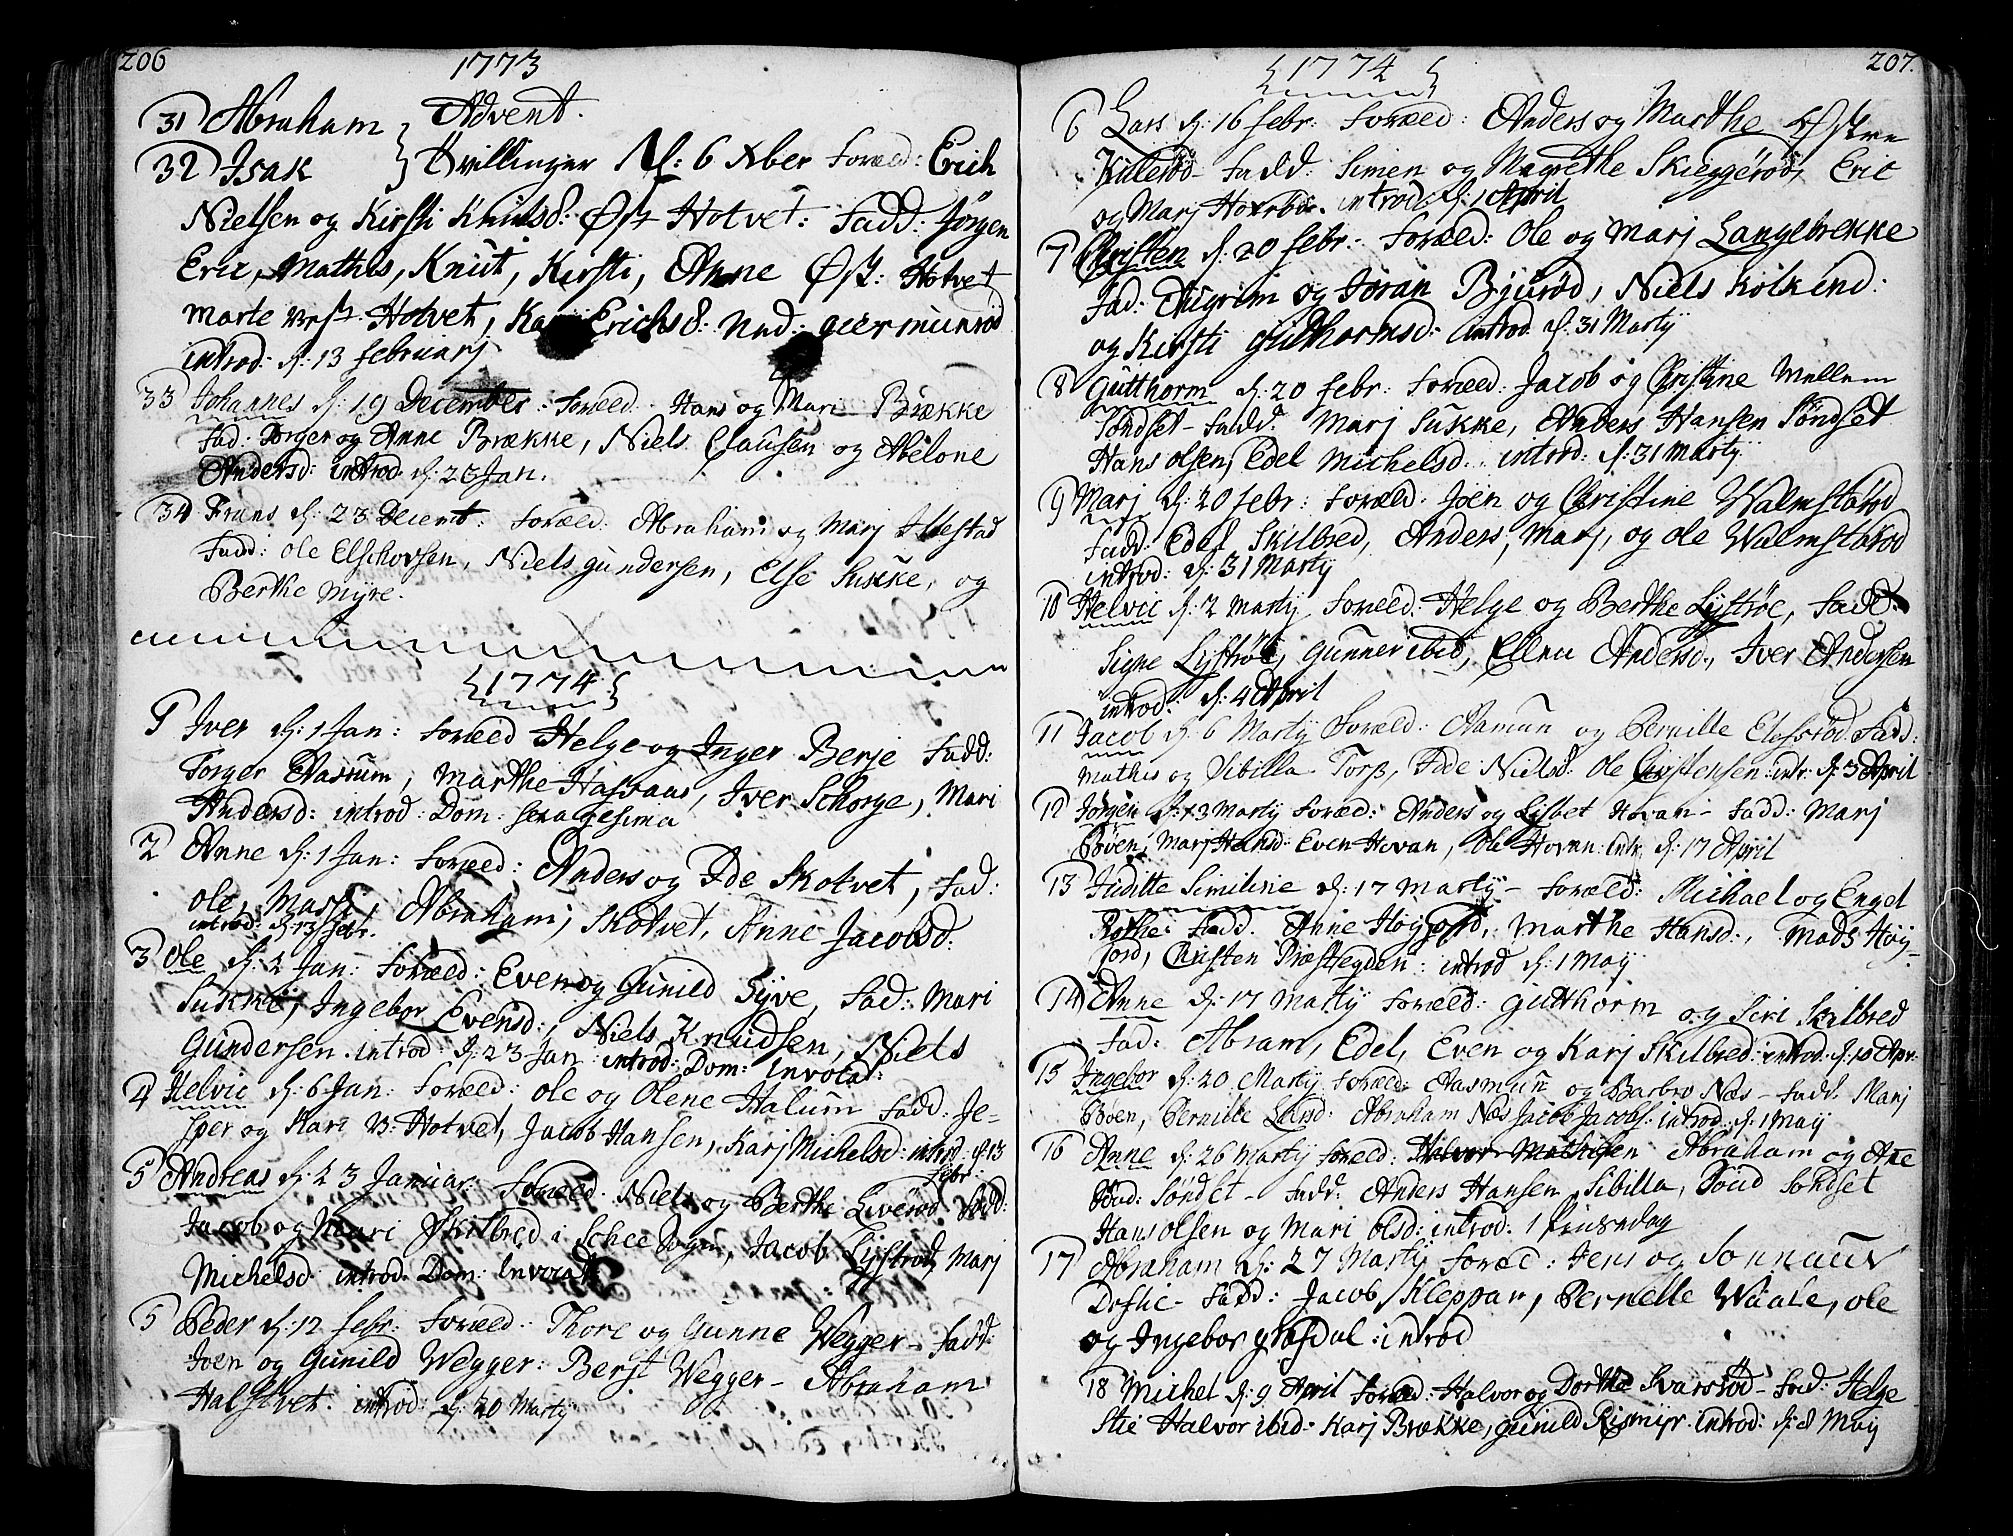 206
1773
Advent.
31 Abraham
32 Isak } Tvillinger d: 6 Xber Foræld: Erich
Nielsen og Kirsti Knudsd: Øst Hotvet: Fadd: Jørgen
Eric, Mathis, Knut, Kirsti, Anne Øst: Hotvet
Marte Vest Hotvet, Kari Erichsd: Ned: giermunrød
introd: d: 13 februarj
33 Johannes d: 19 December: Foræld: Hans og Mari Brække
Fad: Torger og Anne Brække, Niels Clausen og Abelone
Andersd: introd: d: 23 Jan.
34 Frans d: 23 Decemb: Foræld: Abraham og Marj Illestad
Fadd: Ole Elschovsen, Niels gundersen, Else Sukke, og
Berthe Myre.
1774
1 Iver d: 1 Jan: Foræld Helge og Inger Berje Fadd:
Torger Aassum, Marthe Hassaas, Iver Schorge, Mari
Andersd: introd: Dom: sexagesima
2 Anne d: 1 Jan: Foræld: Anders og Ide Skotvet, Fad:
Ole, Marj, Abraham, Skotvet, Anne Jacobsd:
introd: d: 13 febr.
3 Ole d: 2 Jan: Foræld: Even og Gunild Syve, Fad: Mari
Sukke, Ingebor Evensd:, Niels Knudsen, Niels
Gundersen. introd: d: 23 Jan: introd: Dom: Invocav:
4 Helvic d: 6 Jan: Foræld: Ole og Olene Halum Fadd: Je-
sper og Kari N: Hotvet, Jacob Hansen, Karj Michelsd: introd: d 13
febr:
5 Andreas d: 23 Januar: Foræld: Niels og Berthe Liverød Fadd:
Jacob og Mari Skilbred i Schee Sogn, Jacob Lystrød, Marj
Michelsd: introd: Dom: Invocav:
5 Peder d: 12 febr: Foræld: Thore og Gunne Wegger- Fadd:
Joen og Gunild Wegger: Berst Wegger- Abraham
Halstvet. introd: d: 20 Martj
207.
1774
6 Lars d: 16 febr: Foræld: Anders og Marthe Østre
Kulerød- Fadd: Simen og Magrethe Skieggerød, Eric
og Marj Hoxebøe. introd: d: 1 April
7 Christen d: 20 febr: Foræld: Ole og Marj Langebrekke
Fad: Augrim og Joran Bjurød, Niels Kolkind:
og Kirsti gutthormsd: introd. d: 31 Martj
8 Gutthorm d: 20 febr: Foræld: Jacob og Christine Mellem
Søndset- Fadd: Marj Sukke, Anders Hansen Søndset
Hans Olsen, Edel Michelsd: introd: d: 31 Martj
9 Marj d: 20 febr: Foræld: Joen og Christine Walmstadrød
Fadd: Edel Skilbred, Anders, Marj, og Ole Walmstadrød
introd: d: 31 Martj
10 Helvic d: 2 Martj Foræld: Helge og Berthe Lystrøe, Fadd:
Signe Lystrøe, Gunner ibid, Ellen Andersd., Iver Andersen
introd: d: 4 April
11 Jacob d: 6 Martj Foræld: Aamun og Pernille Elefsrød Fadd:
Mathis og Sibilla Torp, Ide Nielsd: Ole Christensen: intr: d: 3 April
12 Jørgen d: 13 Martj Foræld: Anders og Lisbet Hovan- Fadd: Marj
Bøven, Marj Hansd: Even Hovan, Ole Hovan: intr: d: 17 April
13 Juditte Similine d: 17 Martj- Foræld: Michael og Engel
Rothe: Fadd. Anne Høyjord, Marthe Hansd:, Mads Høy-
jord, Christen Præstegden: introd d: 1 May
14 Anne d: 17 Martj Foræld: Gutthorm og Siri Skilbred
Fad: Abram, Edel, Even og Karj Skilbred: introd: d: 10 Apr:
15 Ingebor d: 20 Martj Foræld: Aasmun og Barbro Næs- Fadd: Marj
Bøen, Pernille Larsd: Abraham Næs Jacob Jacobs: introd: d: 1 May
16 Anne d: 26 Martj Foræld: Halvor Mathisen Abraham og Ane
Søndet- Fadd: Anders Hansen, Sibilla, Søndset
Hans Olsen og Mari Olsd: introd: 1 Pinsedag
17 Abraham d: 27 Martj Foræld: Jens og Sonnauv
Dofse- Fadd: Jacob Kleppan, Pernelle Waale, Ole
og Ingebor græsdal: introd
18 Michel d: 9 April Foræld: Halvor og Dorthe Svarsrød- Fad: Helge
Stie Halvor ibid- Karj Brække, Gunild Rismyr. introd: d: 8 May